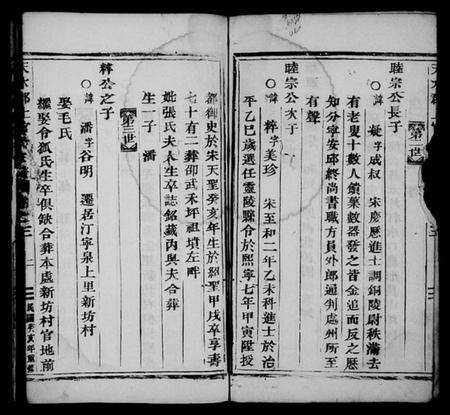 第二世
睦宗公長子
○諱 凝字咸叔 宋慶厯進士調銅陵尉秩滿去
有老叟十數人饋菓數器發之皆金追而反之厯
知分寧安邱終尚書職方員外郎通判處州所至
有聲
睦宗公次子
○諱 粹字美珍 宋至和二年乙未科進士於治
平乙巳歲選任靈陵縣令於熙寧七年甲寅陞授
都御史於宋天聖癸亥年生於紹聖甲戌卒享壽
七十有二葬御武禾坪祖墳左畔
妣張氏夫人生卒誌銘藏內與夫合葬
生一子 潘
第三世
粹公之子
○諱 潘字谷明 遷居汀寧泉上里新坊村
娶毛氏
繼娶令狐氏生卒俱缺合葬本處新坊村官地前